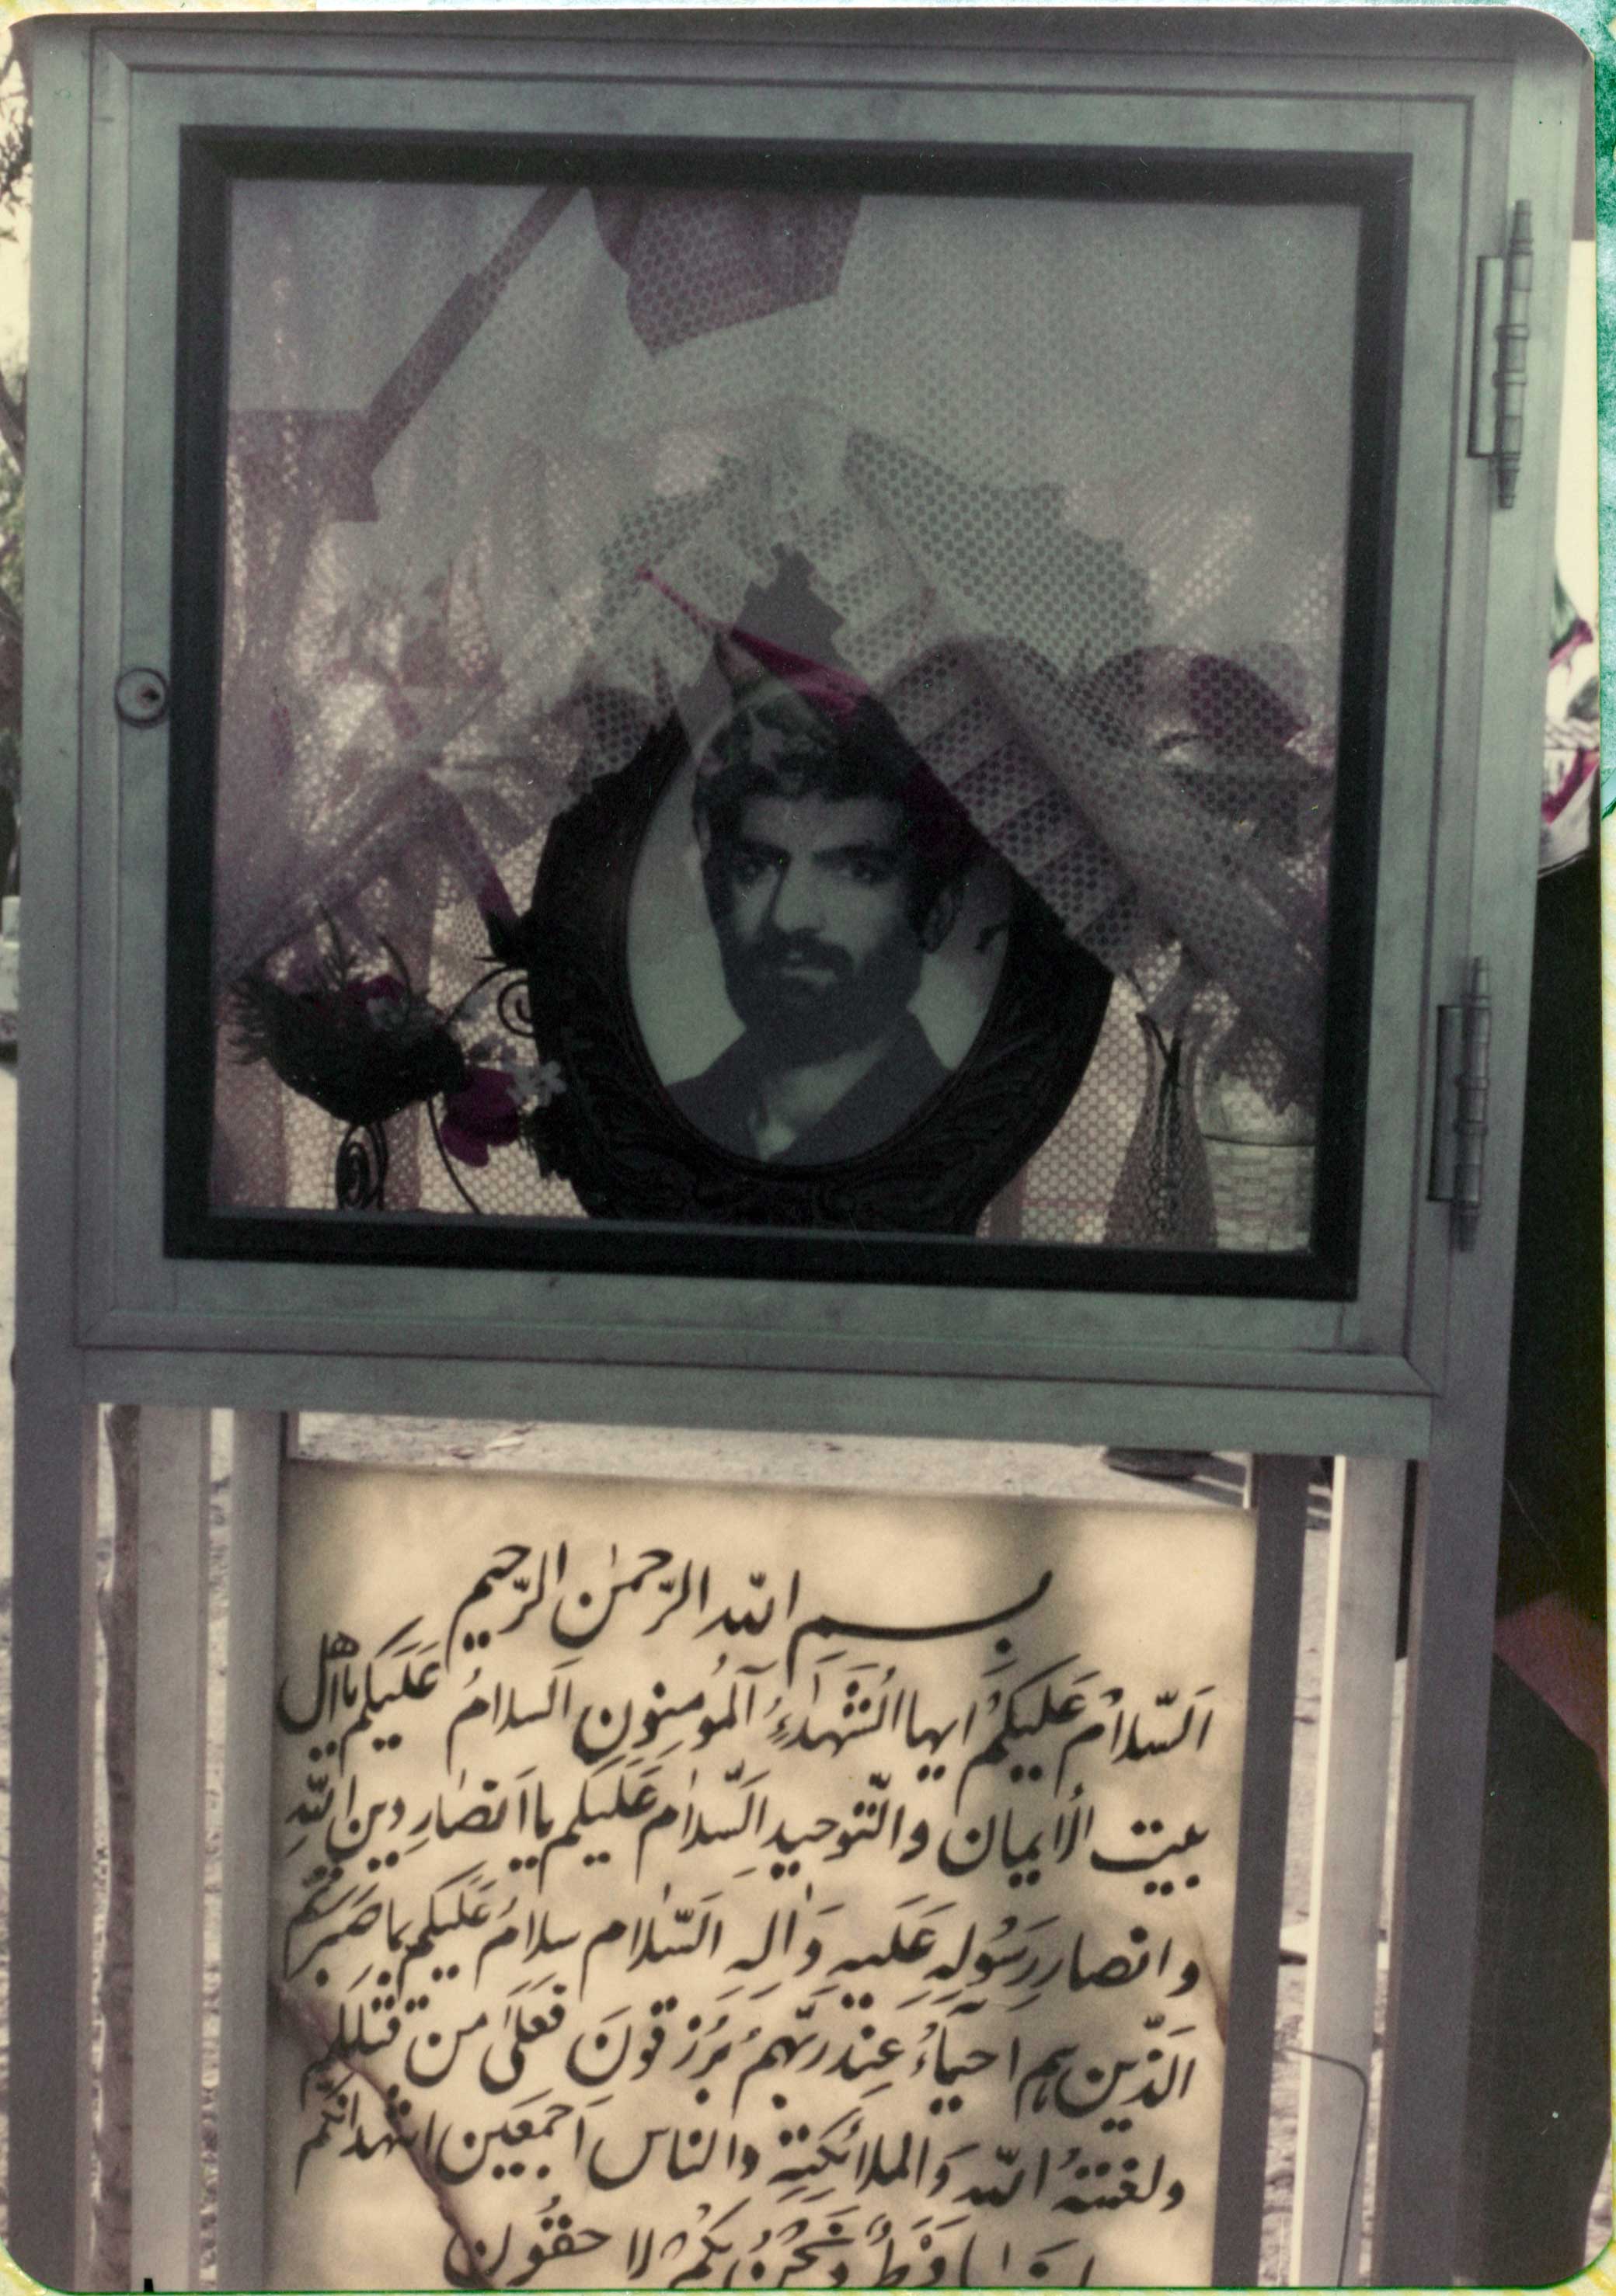 بسم الله الرّحمٰن الرّحیم
اَلسّلامُ عَلَیکُم ایها الشُهَداءُ اَلمُومِنون اَلسلامُ عَلَیکم یا اهل
بیت الاُیمان والتّوحید اَلسَّلام عَلَیکم یا اَنصار دین اللهِ
وانصار رَسُولِهِ عَلَیه وَاله اَلسَّلام سلامُ عَلَیکم بِما صَبَرتُم
اَلذّین هم احیآءُ عِند رَبّهِمُ یُرزقونَ فَعَلَی من قتلکم
ولعنتهُ الله وَالملائکتِهِ والناس اَجمَعین اشهد انکم
لنا وَنَحنُ بِکُم لا حقوُن